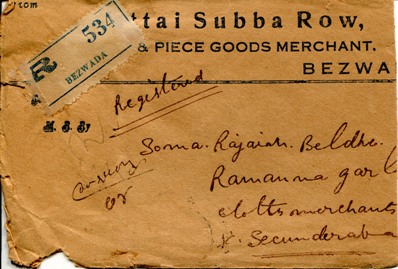 From
ttai Subba Row,
& PIECE GOODS MERCHANT.
BEZWA
R 534
BEZWADA
Registered
M. R. Ry
Soma. Rajaiah. Beldhe.
Ramanna garl
cloths merchants
Secunderaba